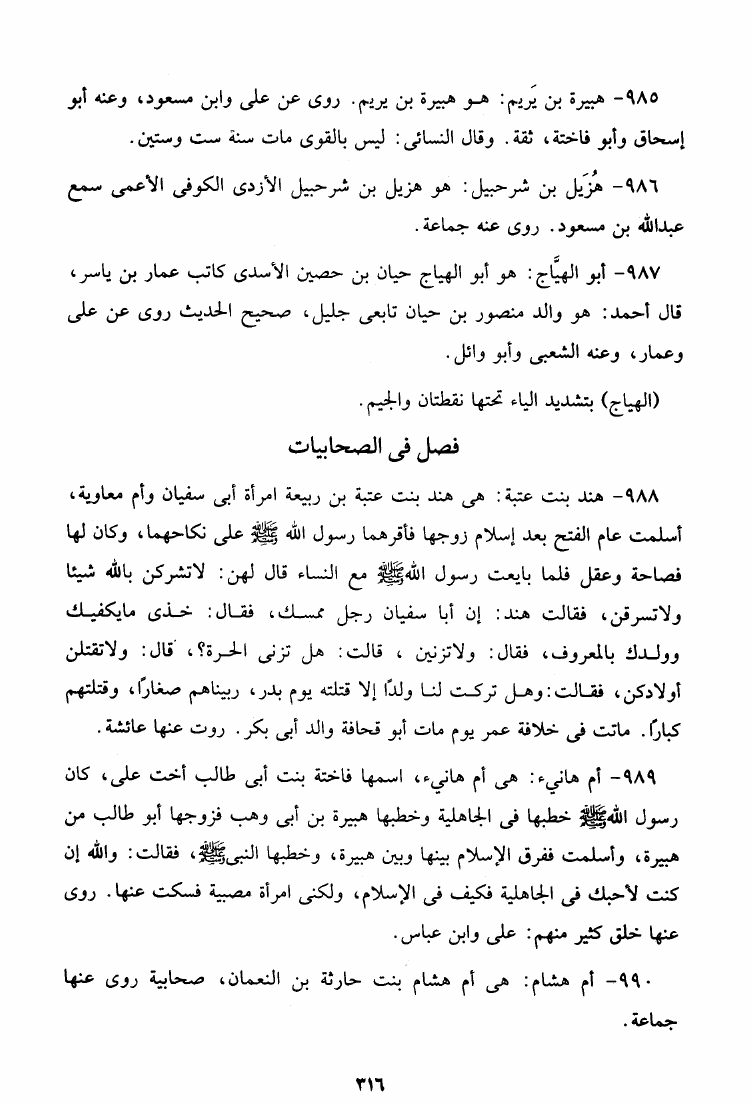 ٩٨٥- هبيرة بن يَريم: هـو هبيرة بن يريم. روى عن على وابن مسعود، وعنه أبو
إسحاق وأبو فاختة، ثقة. وقال النسائى: ليس بالقوى مات سنة ست وستين.
٩٨٦- هُزَيل بن شرحبيل: هو هزيل بن شرحبيل الأزدى الكوفى الأعمى سمع
عبدالله بن مسعود. روى عنه جماعة.
٩٨٧- أبو الهيَّاج: هو أبو الهياج حيان بن حصين الأسدى كاتب عمار بن ياسر،
قال أحمد: هو والد منصور بن حيان تابعى جليل، صحيح الحديث روى عن على
وعمار، وعنه الشعبى وأبو وائل.
(الهياج) بتشديد الياء تحتها نقطتان والجيم.
فصل فى الصحابيات
٩٨٨- هند بنت عتبة: هى هند بنت عتبة بن ربيعة امرأة أبى سفيان وأم معاوية،
أسلمت عام الفتح بعد إسلام زوجها فأقرهما رسول الله ﷺ على نكاحهما، وكان لها
فصاحة وعقل فلما بايعت رسول الله ﷺ مع النساء قال لهن: لاتشركن بالله شيئا
ولاتسرقن، فقالت هند: إن أبا سفيان رجل ممسـك، فقـال: خـذى مايكفيـك
وولـدك بالمعروف، فقال: ولاتزنين ، قالت: هل تزنى الحـرة؟، قال: ولاتقتلن
أولادكن، فقـالت: وهـل تركـت لنـا ولدًا إلا قتلته يوم بدر، ربيناهم صغارًا، وقتلتهم
كبارًا. ماتت فى خلافة عمر يوم مات أبو قحافة والد أبى بكر. روت عنها عائشة.
٩٨٩- أم هانيء: هى أم هانيء، اسمها فاختة بنت أبى طالب أخت على، كان
رسول الله ﷺ خطبها فى الجاهلية وخطبها هبيرة بن أبى وهب فزوجها أبو طالب من
هبيرة، وأسلمت ففرق الإسلام بينها وبين هبيرة، وخطبها النبى ﷺ، فقالت: والله إن
كنت لأحبك فى الجاهلية فكيف فى الإسلام، ولكنى امرأة مصبية فسكت عنها. روى
عنها خلق كثير منهم: على وابن عباس.
٩٩٠- أم هشام: هى أم هشام بنت حارثة بن النعمان، صحابية روى عنها
جماعة.
٣١٦